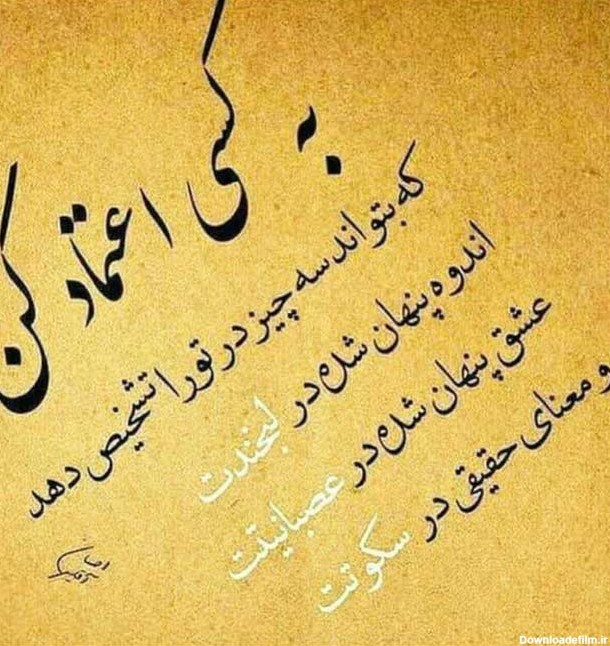 به کسی اعتماد کن
که بتواند سه چیز در تو را تشخیص دهد
اندوه پنهان شده در لبخندت
عشق پنهان شده در عصبانیتت
و معنای حقیقی در سکوتت
Downloadefilm.ir